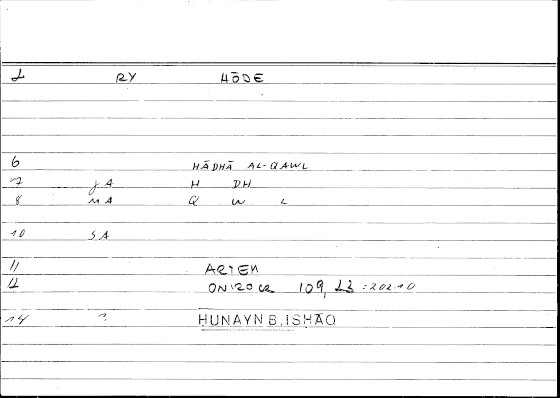 2 RY HŌDE
6 HĀDHĀ AL-QAWL
7 JA H DH
8 MA Q W L
10 SA
11 ARTEM
12 ONIROCR 109, 13 : 202.10
14 ? HUNAYN B. ISHĀQ